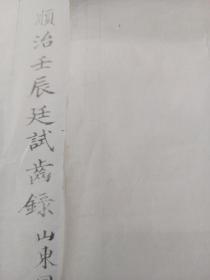 順治壬辰廷試齒錄 山東